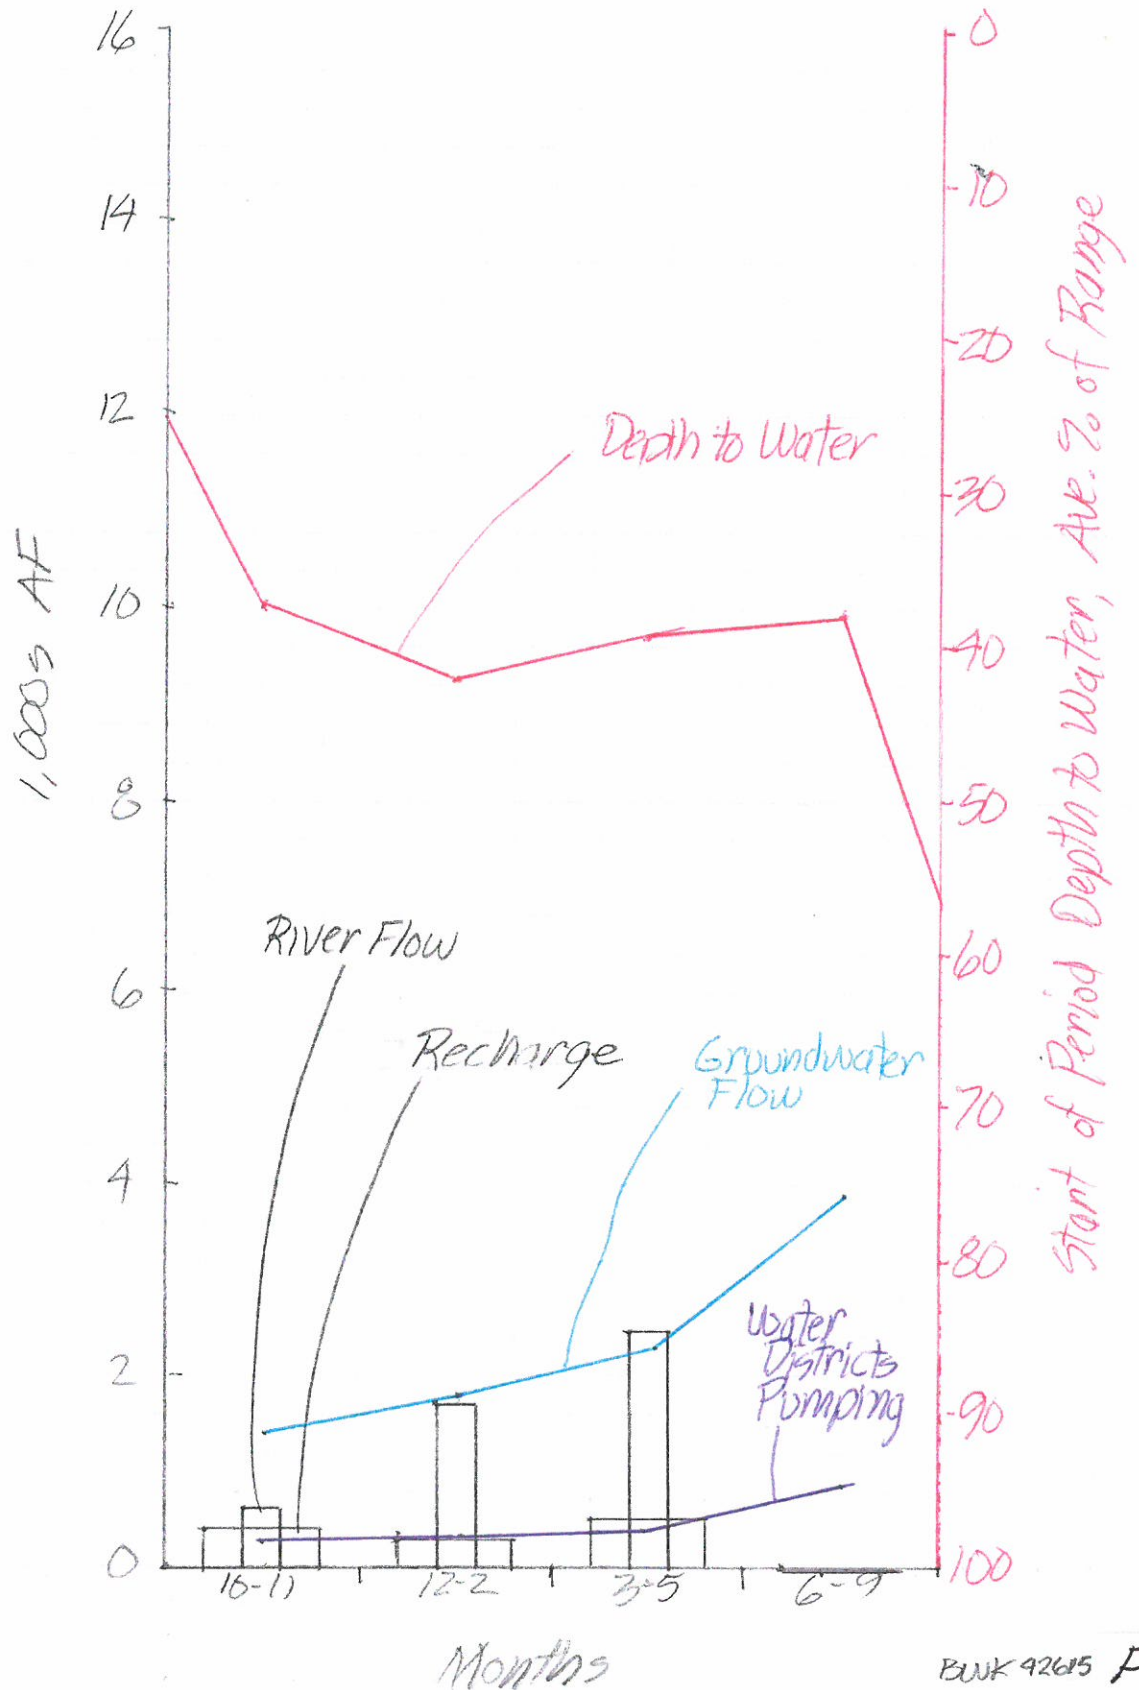 16
14
12
10
8
6
4
2
0
1,000s AF
0
-10
-20
-30
-40
-50
-60
-70
-80
-90
100
Start of Period Depth to Water, Ave. % of Range
Depth to Water
River Flow
Recharge
Groundwater
Flow
Water
Districts
Pumping
10-11
12-2
3-5
6-9
Months